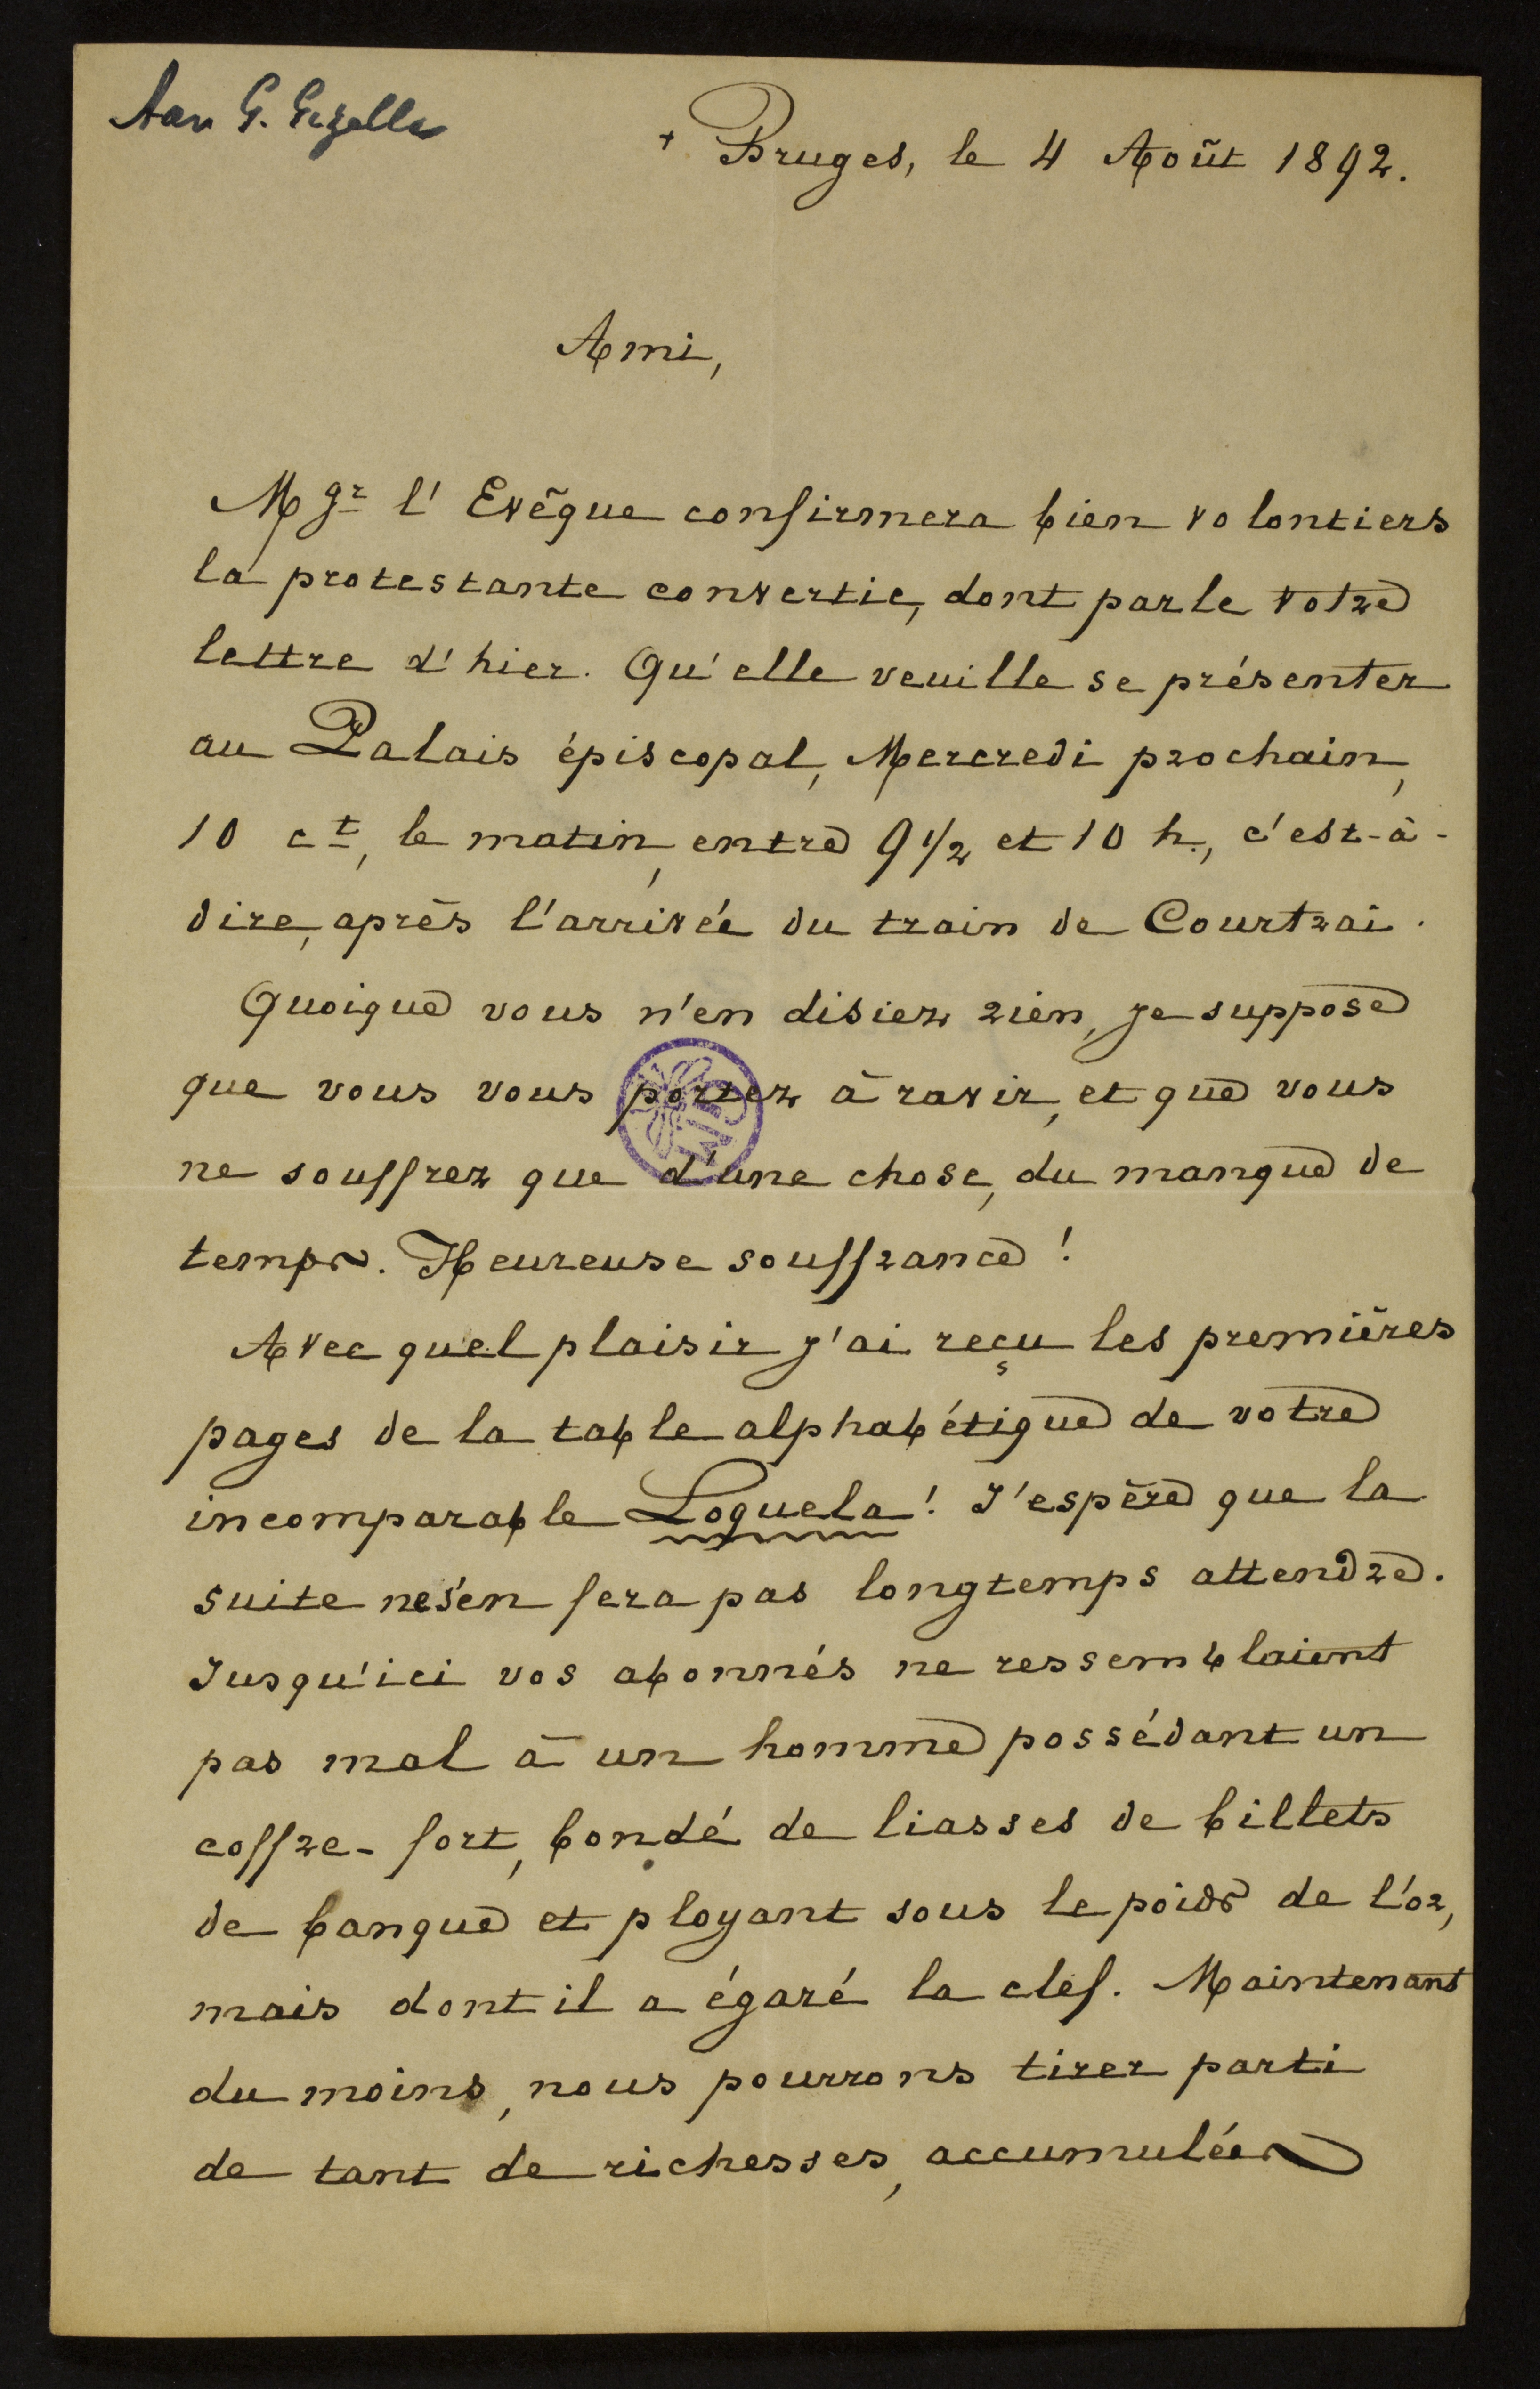 Aan G. Gezelle
+ Bruges, le 4 Août 1892.
Ami,
Mgr l'Evêque confirmera bien volontiers
la protestante convertie, dont parle votre
lettre d'hier. Qu'elle veuille se présenter
au Palais épiscopal, Mercredi prochain,
10 ct, le matin, entre 9 1/2 et 10 h., c'est-à-
dire, après l'arrivée du train de Courtrai.
Quoique vous n'en disiez rien, je suppose
que vous vous portez à ravir, et que vous
ne souffrez que d'une chose, du manque de
temps. Heureuse souffrance !
Avec quel plaisir j'ai reçu les premières
pages de la table alphabétique de votre
incomparable Loquela ! J'espère que la
suite ne s'en fera pas longtemps attendre.
Jusqu'ici vos abonnés ne ressemblaient
pas mal à un homme possédant un
coffre-fort, bondé de liasses de billets
de banque et ployant sous le poids de l'or,
mais dont il a égaré la clef. Maintenant
du moins, nous pourrons tirer parti
de tant de richesses, accumulées